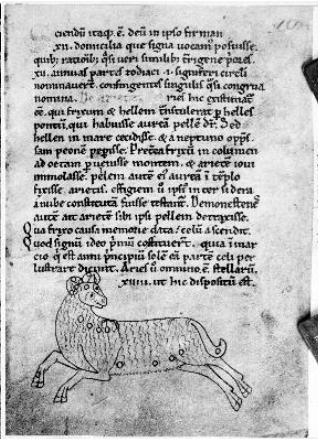 ciendū itaq; ē. deū in ipso firman
xii. domicilia que signa uocam' posuisse.
quib; rationib; q̄si ueri simili b; origine
xii. annuas partes zodiaci .i. signiferi circli
nominauerť. contingentes singulis q̄si congrua
nomina. ries hic existimať
eē. qui frixum & hellem transtulerat p helles
pontū, qui habuisse aureā pellē dř. Sed
hellen in mare cecidisse. & a neptuno
sam peonē peperisse. Preterea frixū in columen
ad oetam puenisse montem. & arietē ioui
immolasse. pelem autē ei' aureā ī tēplo
fixisse. arietis. effigiem ū ipsi' inter sidera
a nube constitutā fuisse testant'. Demonestenē
autē ait arietē sibi ipsi pellem detraxisse.
Qua frixo causa memorie data: celū ascendit.
Quod signū ideo primū constituerť. quia ī mar
cio q' est anni principiū solē eā partē celi per
lustrare dicunt. Aries ū omnino ē. stellarū
xiiii. ut hic dispositū est.